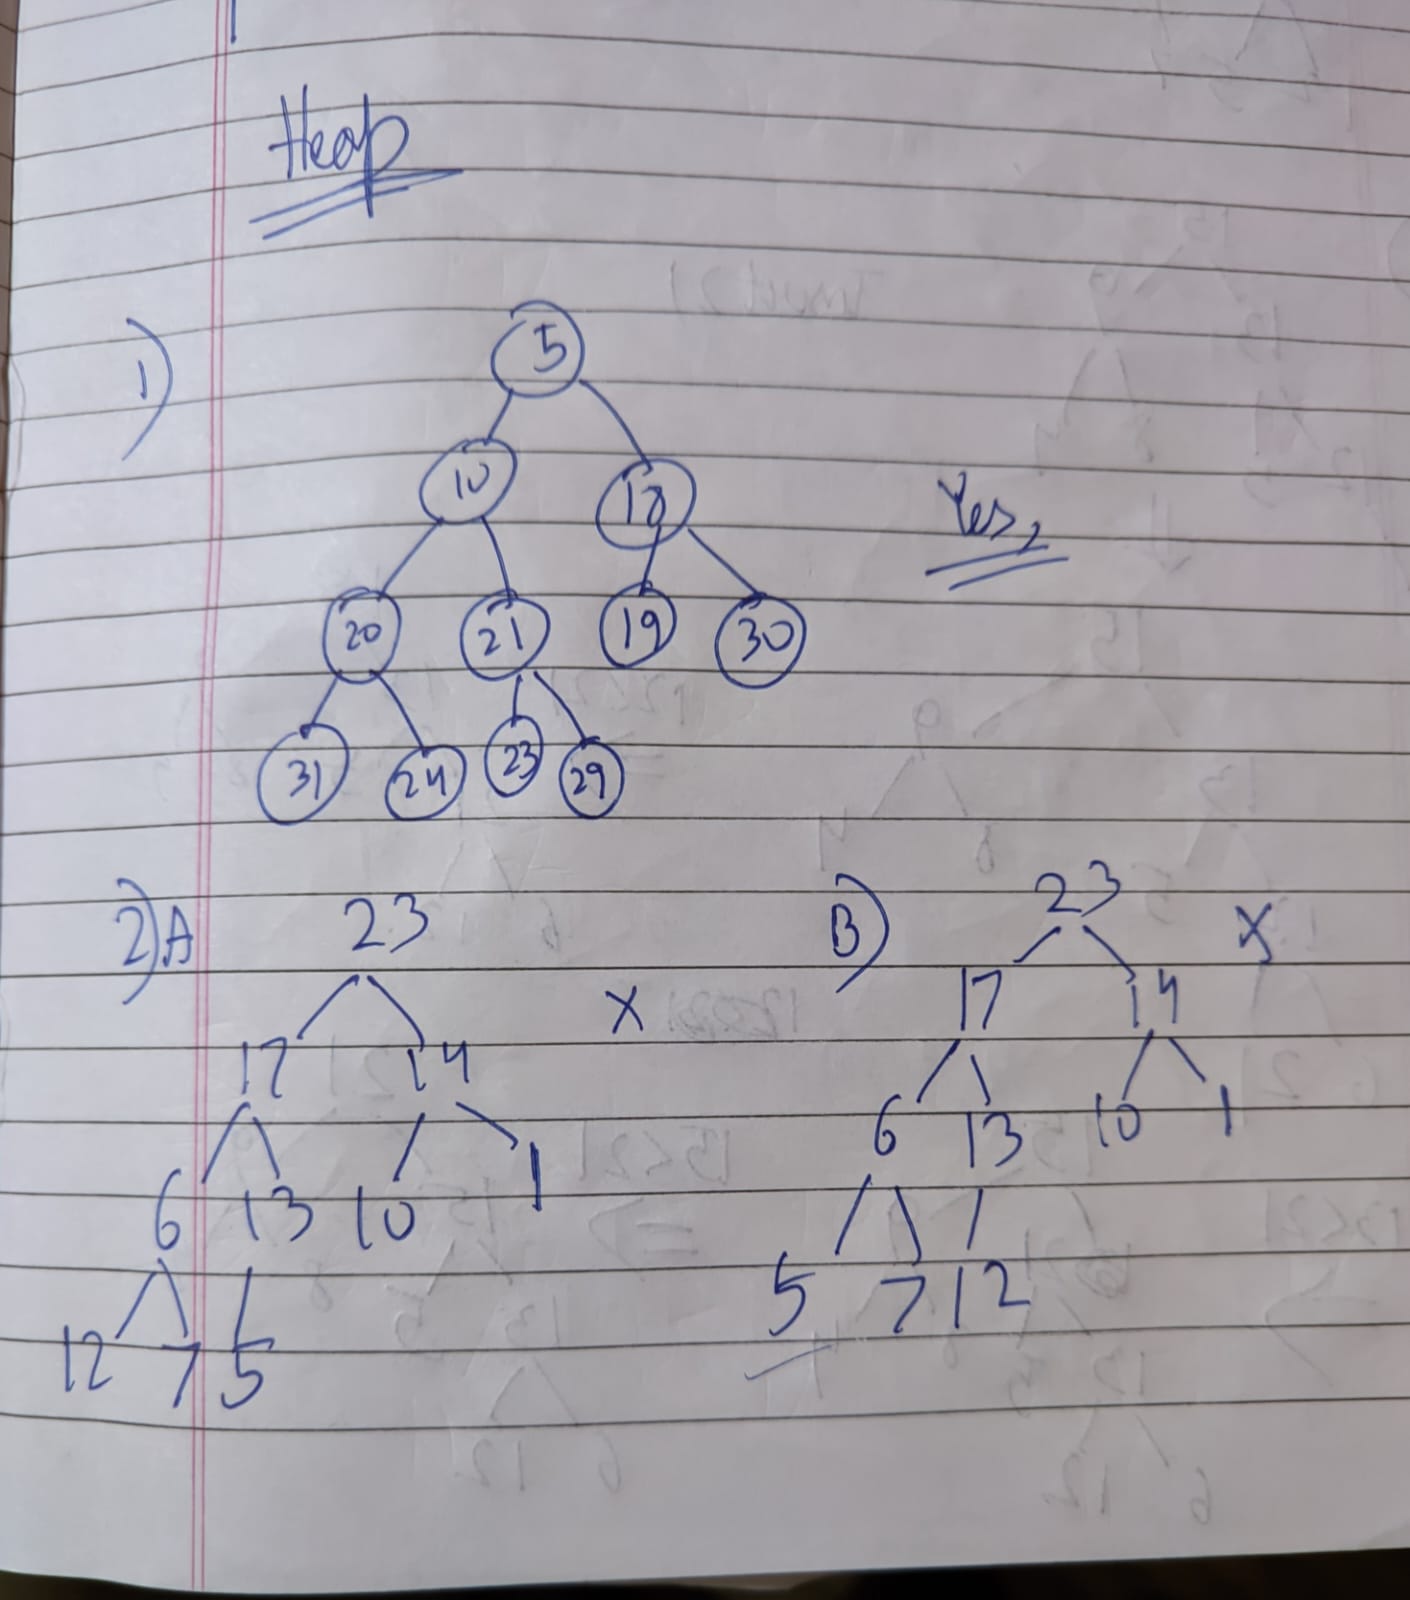 Heap
1)
5
10 18
Yes,
20 21 19 30
31 24 23 29
2) A
23
17 14
X
6 13 10 1
12 7 5
B)
23
X
17 14
6 13 10 1
5 7 12